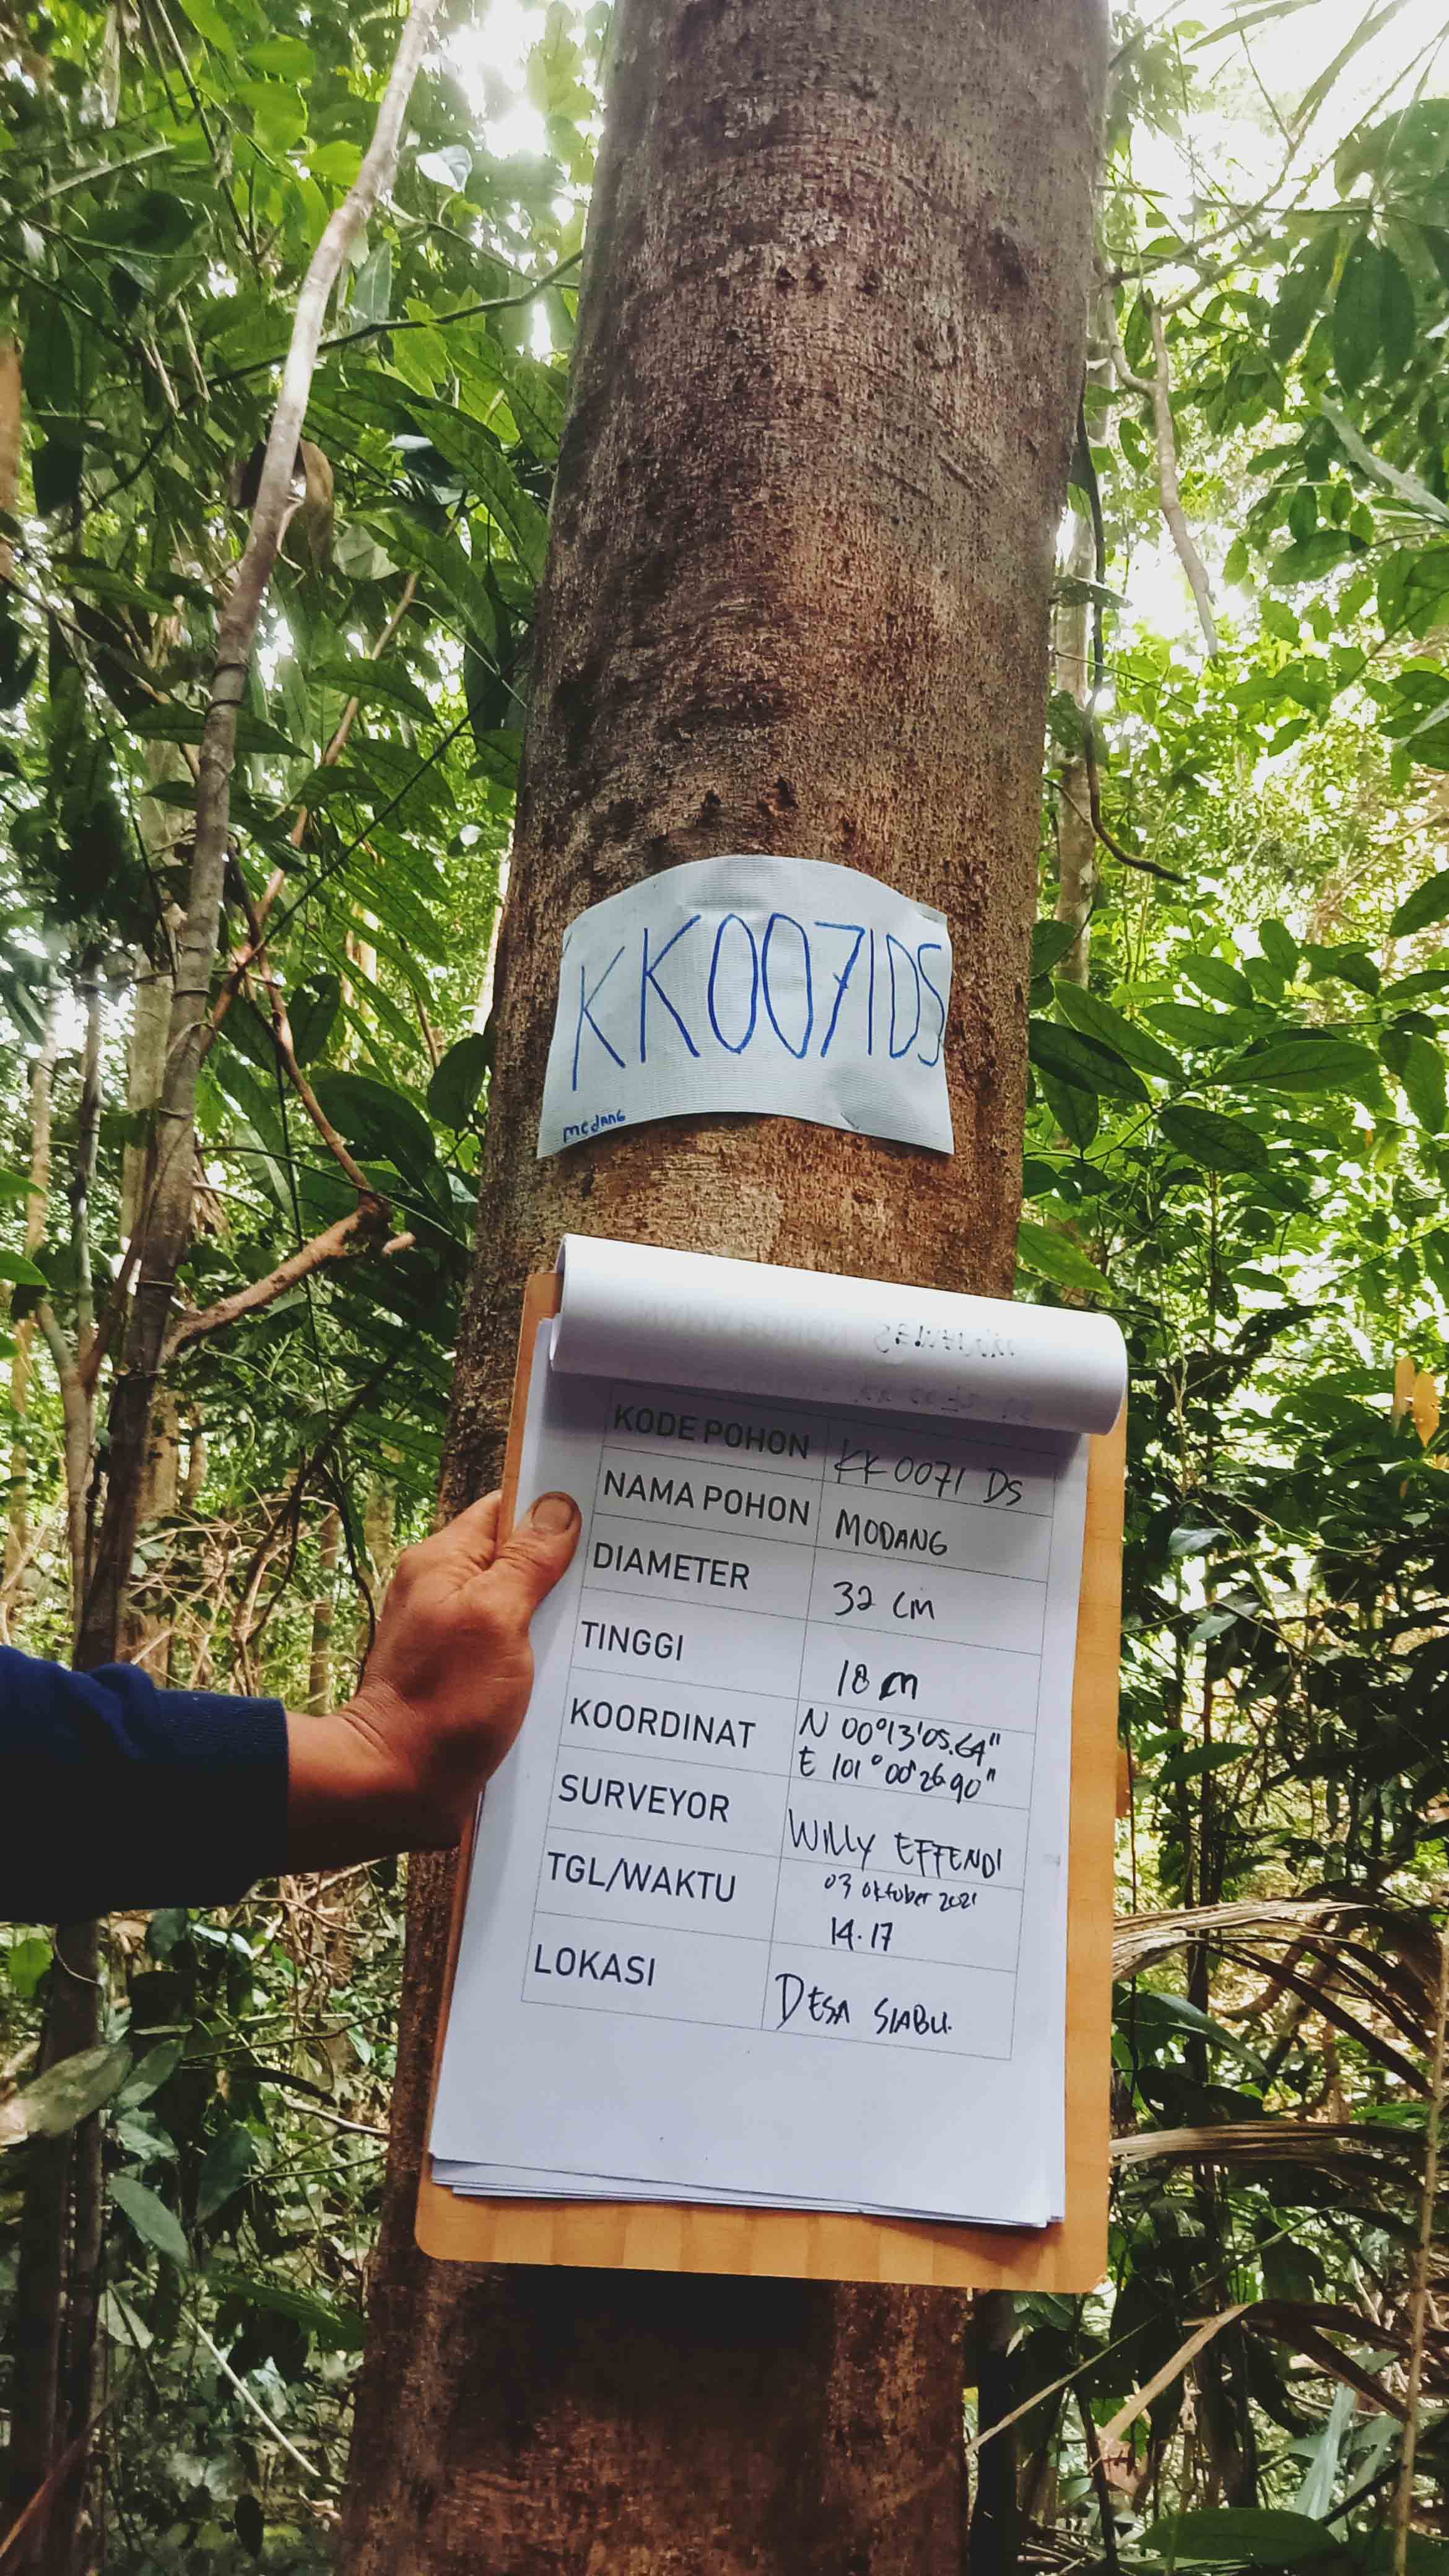 KK0071DS
medang
KODE POHON KK 0071 DS
NAMA POHON MODANG
DIAMETER 32 cm
TINGGI 18 m
KOORDINAT N 00°13'05.64"
E 101°00'26.90"
SURVEYOR WILLY EFFENDI
TGL/WAKTU 03 oktober 2021
14.17
LOKASI DESA SIABU.